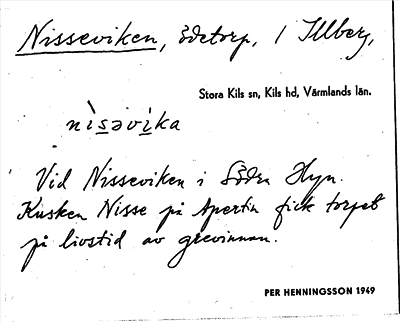 Nisseviken, ödetorp, 1 Illberg,
Stora Kils sn, Kils hd, Värmlands län.
nìsəvika
Vid Nisseviken i Södra Hyn.
Kusken Nisse på Apertin fick torpet
på livstid av grevinnan.
PER HENNINGSSON 1949